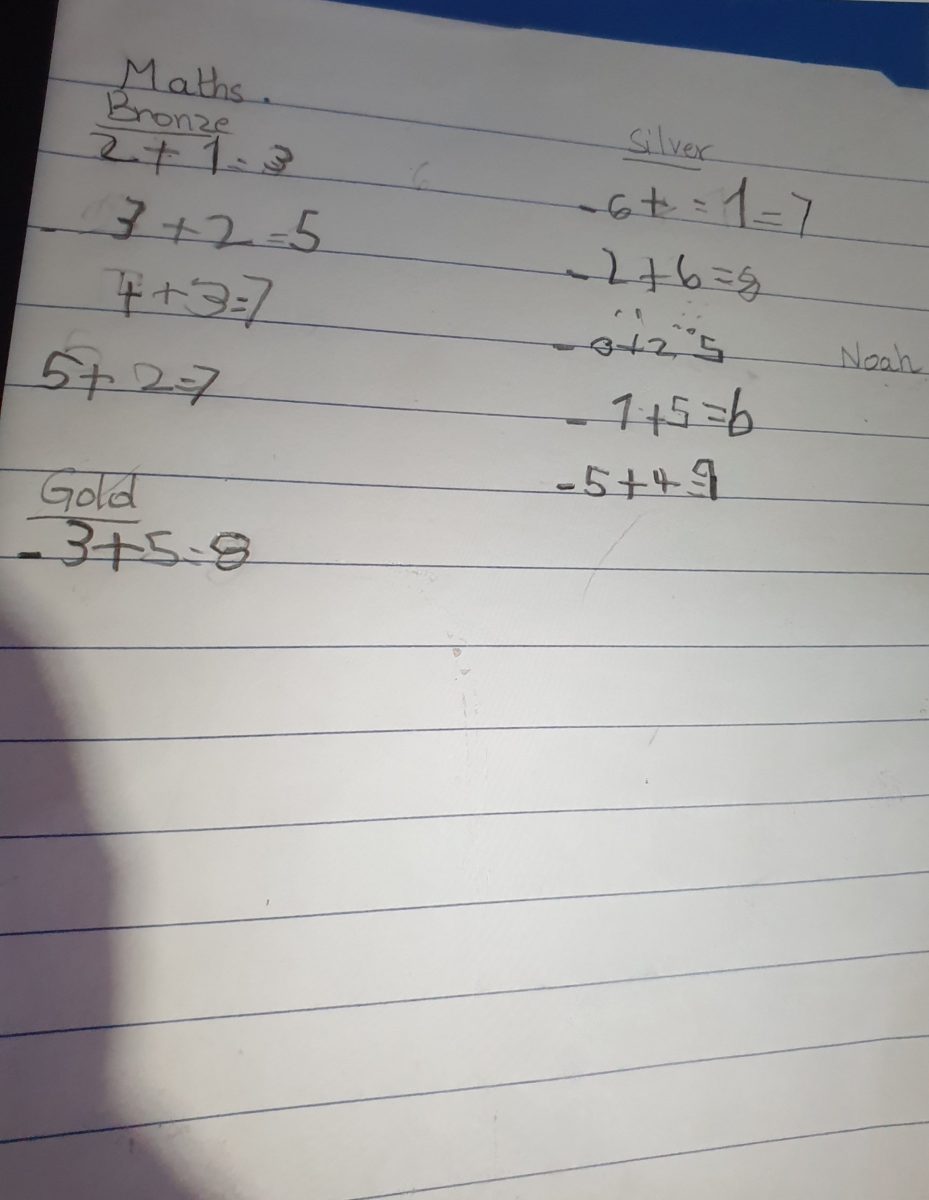 Maths.
Bronze
2 + 1 = 3
- 3 + 2 = 5
4 + 3 = 7
5 + 2 = 7
Gold
- 3 + 5 = 8
Silver
- 6 + = 1 = 7
- 2 + 6 = 8
+ 2 5
- 1 + 5 = 6
- 5 + 4 = 9
Noah